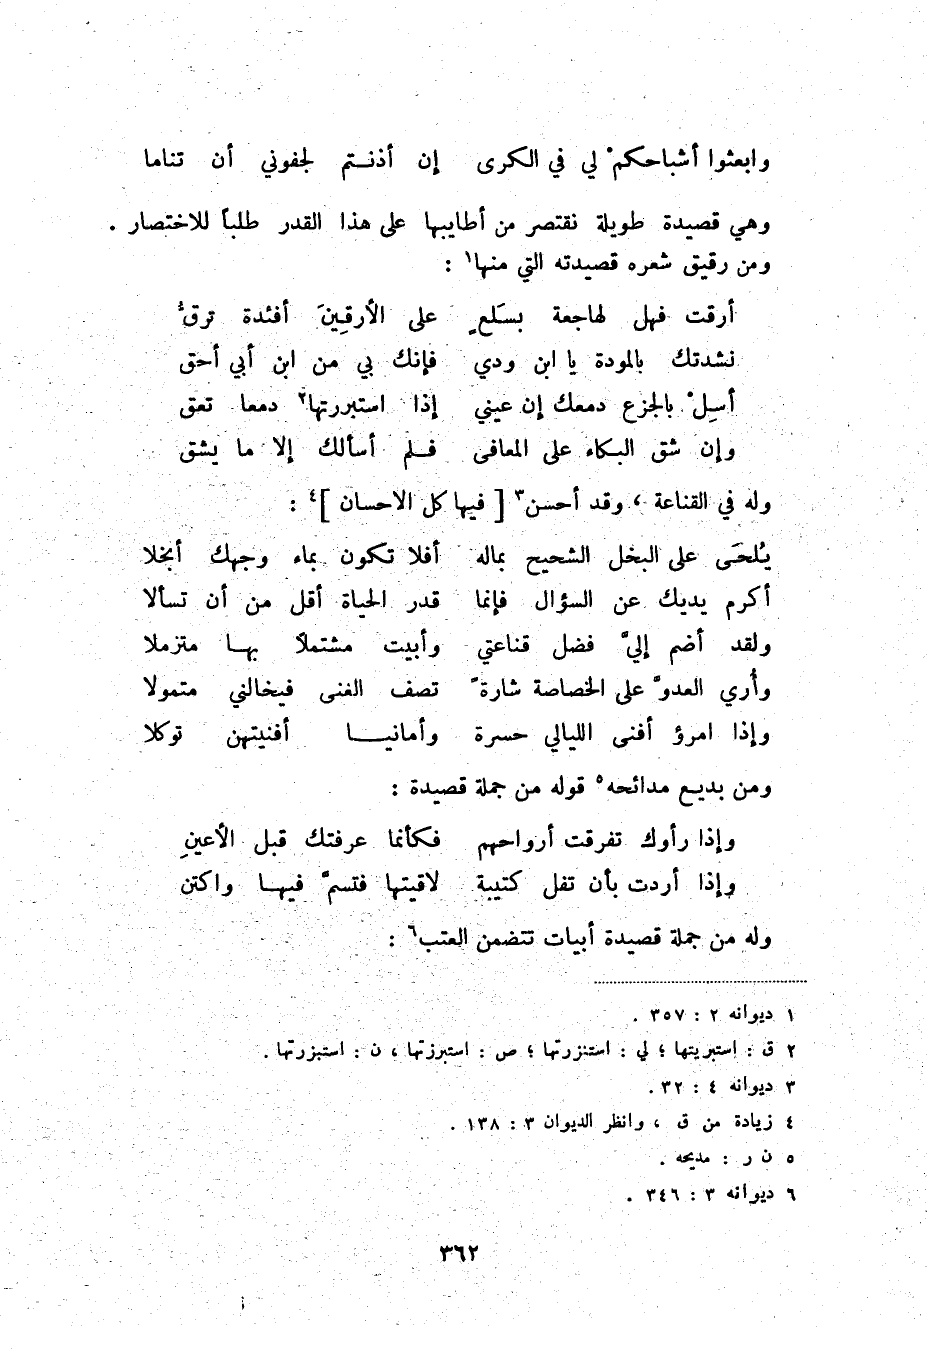 وابعثوا أشباحكمْ لي في الكرى إن أذنـتم لجفوني أن تناما
وهي قصيدة طويلة نقتصر من أطايبها على هذا القدر طلباً للاختصار .
ومن رقيق شعره قصيدته التي منها١ :
أرقت فهل لهاجعة بسَلعٍ على الأرقِينَ أفئدة ترقُّ
نشدتك بالمودة يا ابن ودي فإنك بي من ابن أبي أحق
أسِلْ بالجزع دمعك إن عيني إذا استبررتها٢ دمعا تعق
وإن شق البكاء على المعافى فلم أسألك إلا ما يشق
وله في القناعة ، وقد أحسن٣ [ فيها كل الاحسان ]٤ :
يُلحَى على البخل الشحيح بماله أفلا تكون بماء وجهك أبخلا
أكرم يديك عن السؤال فإنما قدر الحياة أقل من أن تسألا
ولقد أضم إليَّ فضل قناعتي وأبيت مشتملاً بها متزملا
وأُري العدوَّ على الخصاصة شارةً تصف الغنى فيخالني متمولا
وإذا امرؤ أفنى الليالي حسرة وأمانيـا أفنيتهن توكلا
ومن بديع مدائحه٥ قوله من جملة قصيدة :
وإذا رأوك تفرقت أرواحهم فكأنما عرفتك قبل الأعينِ
وإذا أردت بأن تفل كتيبة لاقيتها فتسمَّ فيها واكتن
وله من جملة قصيدة أبيات تتضمن العتب٦ :
١ ديوانه ٢ : ٣٥٧ .
٢ ق : استبريتها ؛ لي : استنزرتها ؛ ص : استبرزتها ، ن : استبزرتها .
٣ ديوانه ٤ : ٣٢ .
٤ زيادة من ق ، وانظر الديوان ٣ : ١٣٨ .
٥ ن ر : مديحه .
٦ ديوانه ٣ : ٣٤٦ .
٣٦٢